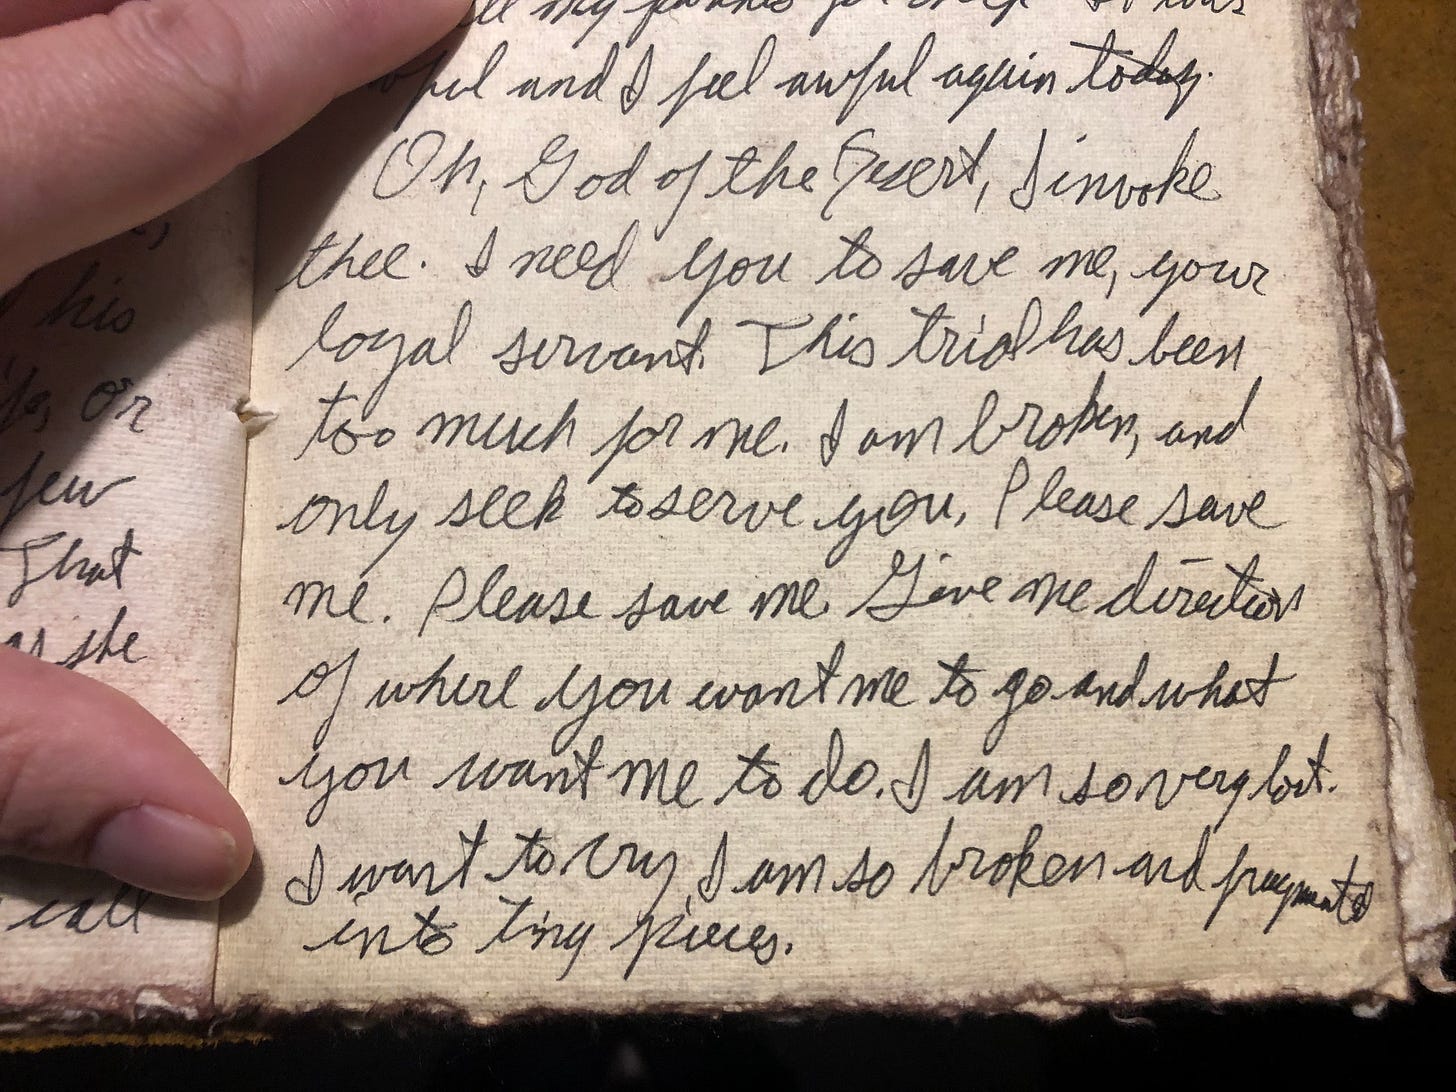 my for It was
and I feel awful again today.
Oh, God of the Desert, I invoke
thee. I need you to save me, your
his
loyal servant. This trial has been
or
too much for me. I am broken, and
few
only seek to serve you. Please save
That
me. Please save me. Give me direction
she
of where you want me to go and what
you want me to do. I am so very lost.
I want to cry I am so broken and fragmented
call
into tiny pieces.